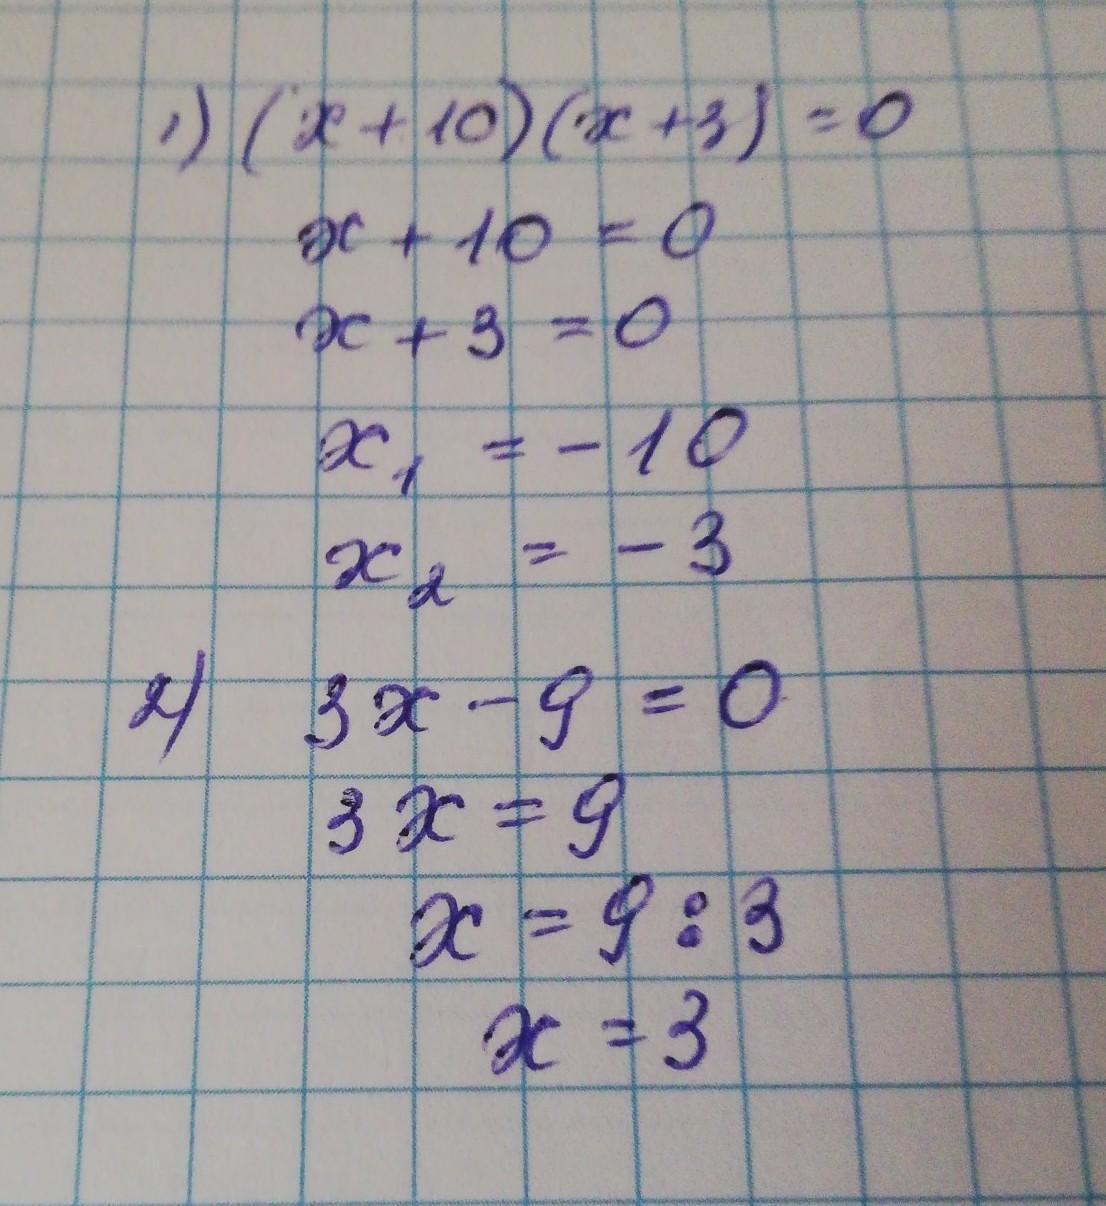 1) (x + 10)(x + 3) = 0
x + 10 = 0
x + 3 = 0
x₁ = - 10
x₂ = - 3
2) 3x - 9 = 0
3x = 9
x = 9 : 3
x = 3